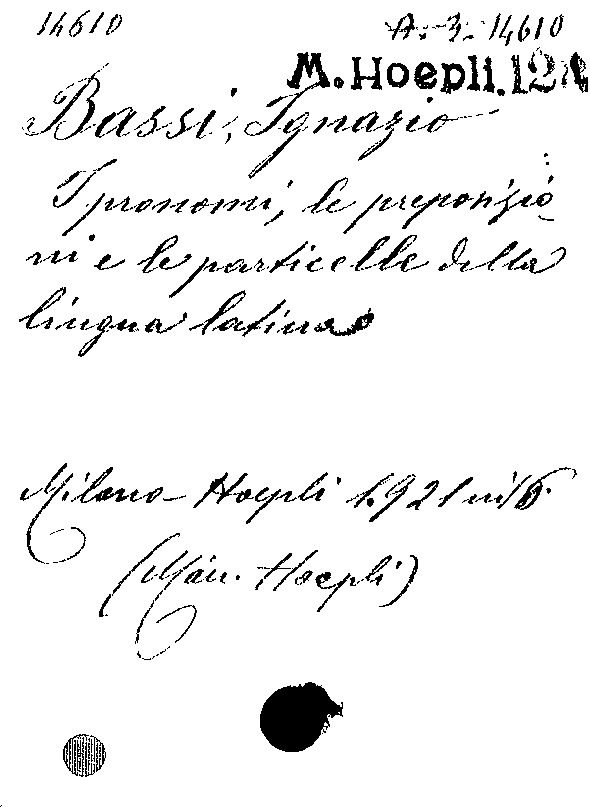 14610 A. 3. 14610
M. Hoepli. 124
Bassi, Ignazio
I pronomi, le preposizio-
ni e le particelle della
lingua latina
Milano - Hoepli 1921 in 16.
(Man. Hoepli)